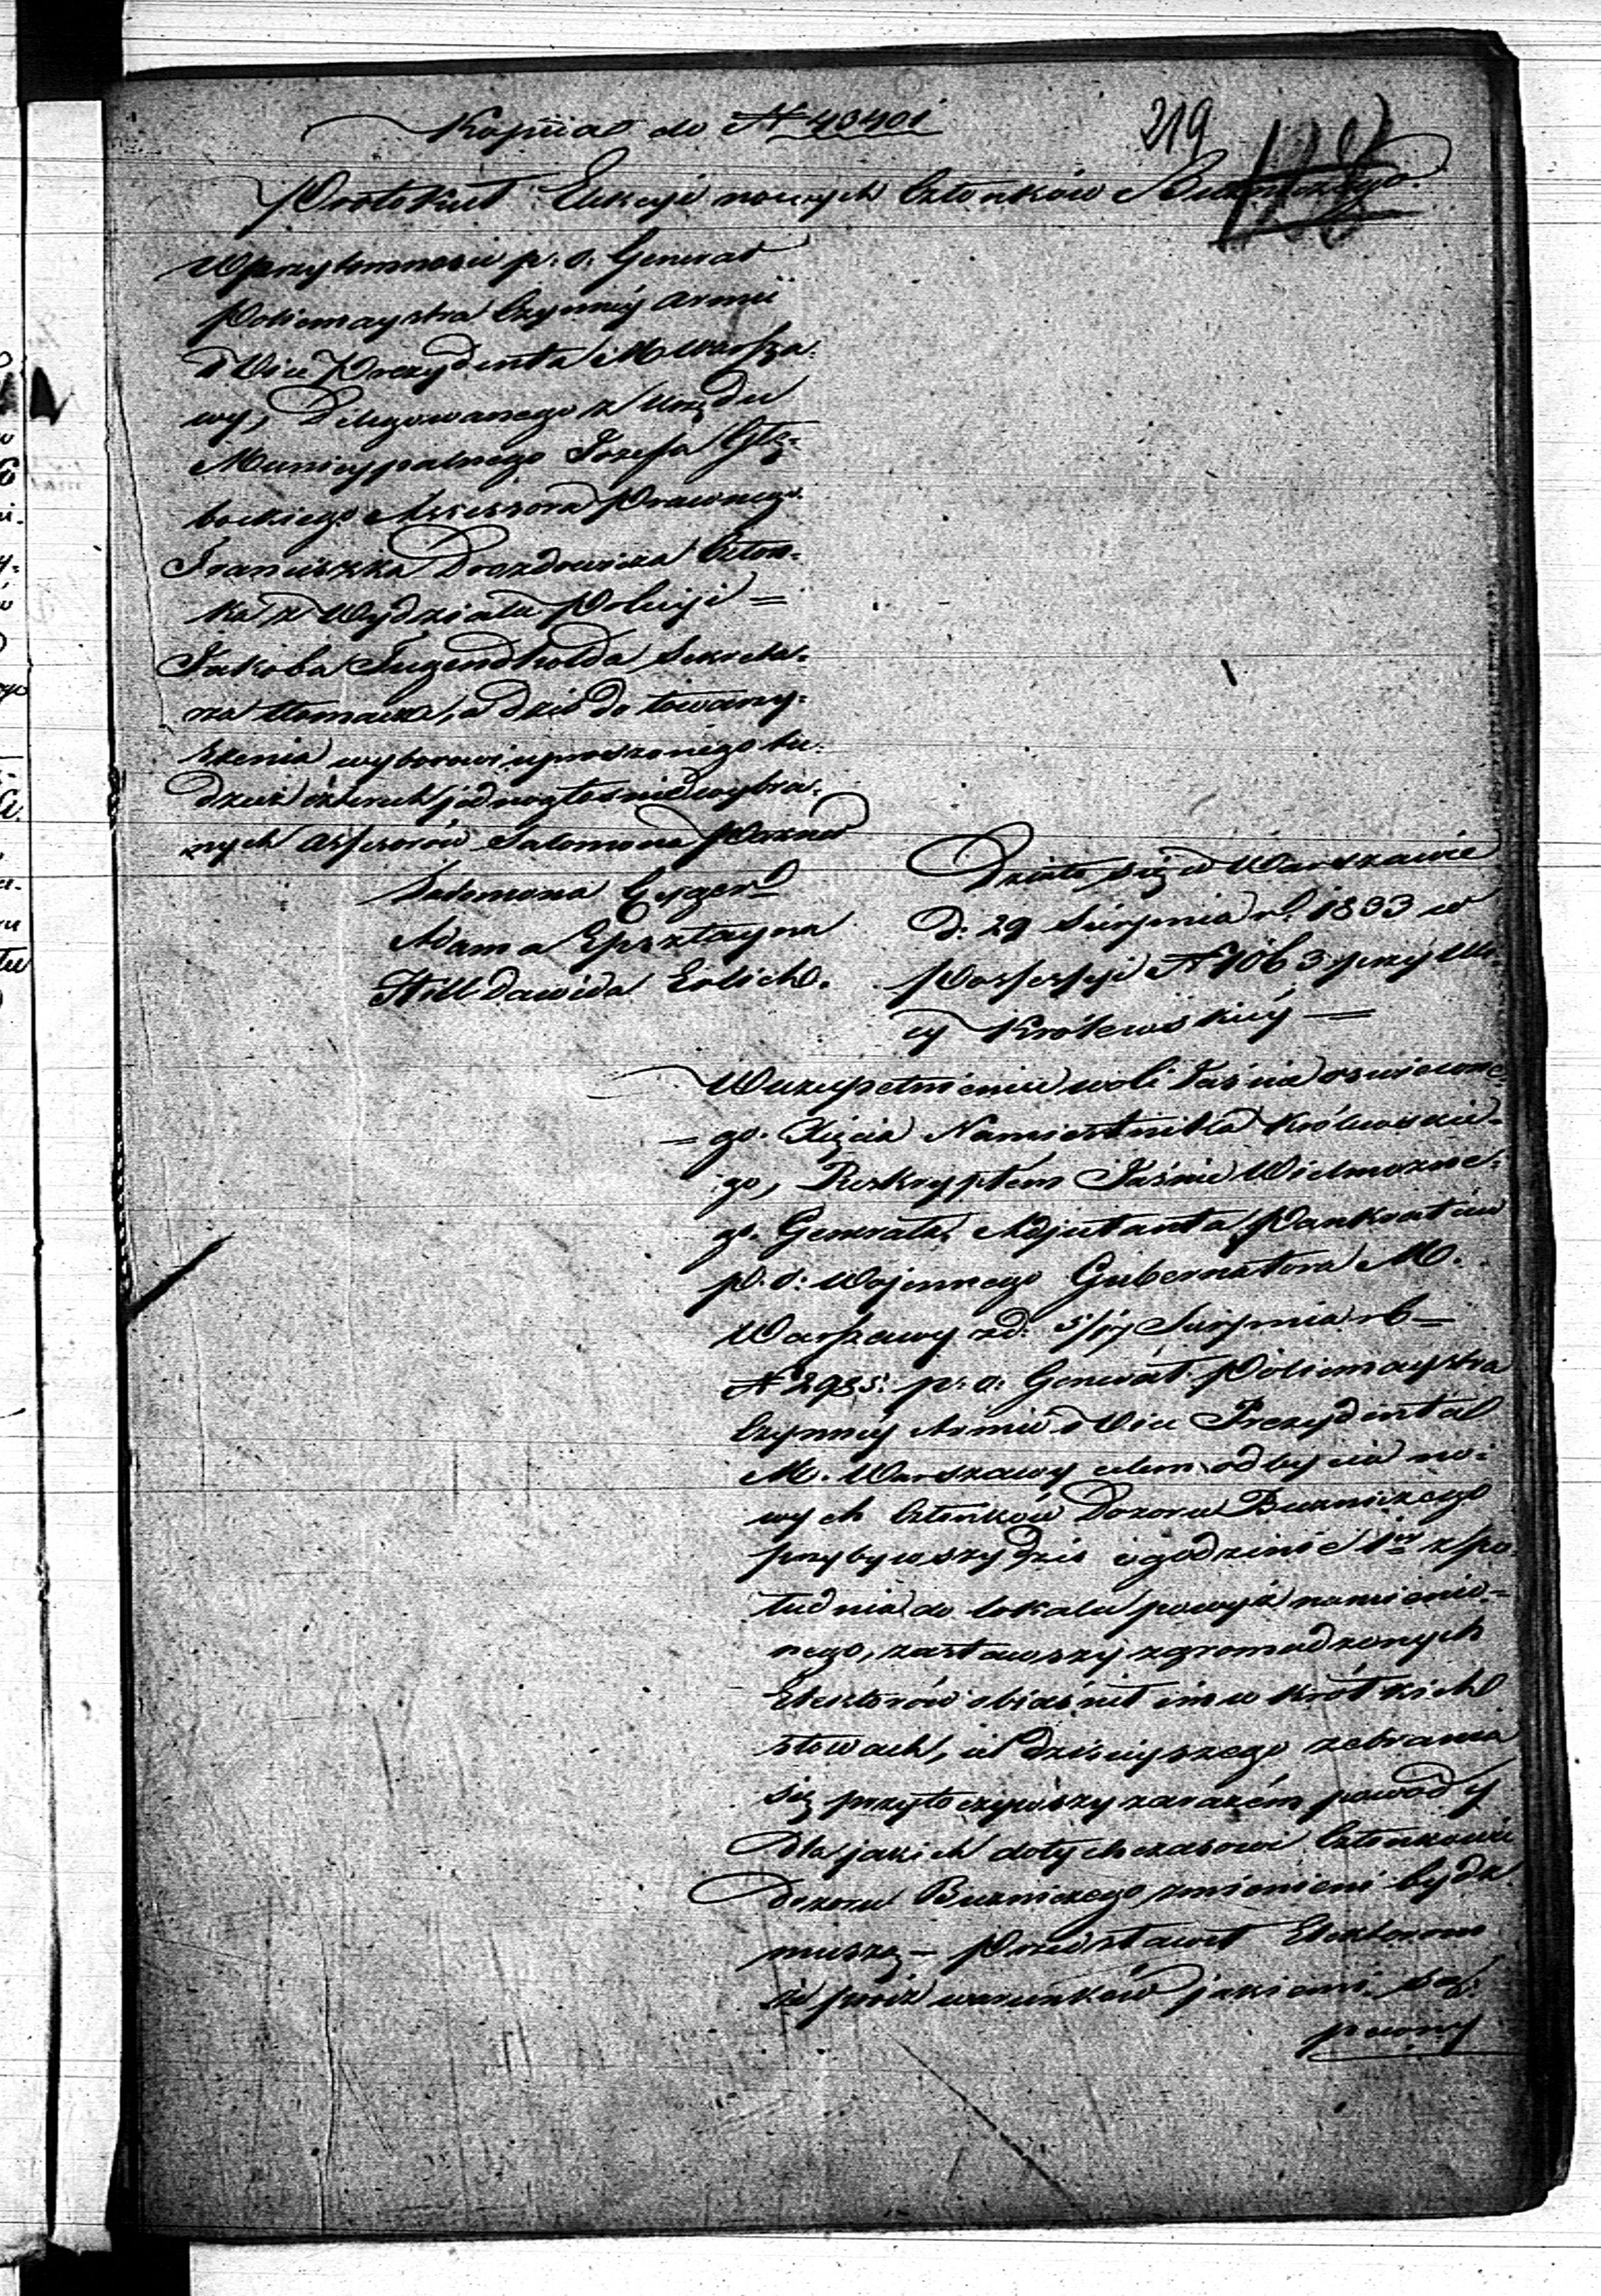 Kopia do N 43401
219
Protokuł Elekcyi nowych Członków Buźniczego.
W przytomności p. o. Generał
Policmaystra Czynney Armii
i Vice Prezydenta M. Warsza-
wy, Delegowanego z Urzędu
Municypalnego Józefa Głę-
bockiego Assessora Prawnego
Franciszka Drozdowicza Człon-
ka z Wydziału Policyi =
Jakóba Tugendholda Sekreta-
rza tłomacza, a dziś do towarzy-
szenia wyborowi uproszonego tu-
dzież czterech jednogłośnie wybra-
nych assessorów Salomona Pozner
Salomona Eyger
Adama Epsztayna
Hill Dawida Erlich.
Działo się w Warszawie
d. 29 Sierpnia r. 1833 w
Possessyi N 1063 przy Uli-
cy Królewskiey =
W uzupełnieniu woli Jaśnie oświecone-
go Xięcia Namiestnika Królewskie-
go, Reskryptem Jaśnie Wielmożne-
go Generała Adjutanta Pankratiew
p. o. Wojennego Gubernatora M.
Warszawy z d. 5/17 Sierpnia rb =
N 2985. p. o. Generał Policmaystra
Czynney Armii i Vice Prezydenta
M. Warszawy celem odbycia no-
wych Członków Dozoru Buźniczego
przybywszy dziś o godzinie 1ey z po-
łudnia do lokalu powyż namienio-
nego, zastawszy zgromadzonych
Elektorów objaśnił im w krótkich
słowach, cel dzisieyszego zebrania
się przytoczywszy zarazem powody
dla jakich dotychczasowi Członkowie
Dozoru Buźniczego zmienieni bydź
muszą – Przedstawił Elektorom
że prócz warunków jakiemi są
pewny